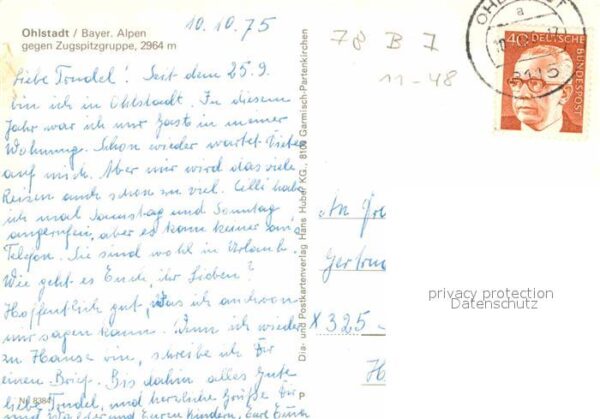 Ohlstadt / Bayer. Alpen
gegen Zugspitzgruppe, 2964 m
10.10.75
Liebe Trudel! Seit dem 25.9.
bin ich in Ohlstadt. In diesem
Jahr war ich nur Gast in meiner
Wohnung. Schon wieder wartet
auf mich. Aber mir wird das viele
Reisen auch schon zu viel. Cilli habe
ich mal Samstag und Sonntag
angerufen, aber es kam keiner ans
Telefon. Sie sind wohl in Urlaub.
Wie geht es Euch, ihr Lieben?
Hoffentlich gut, was ich auch von
mir sagen kann. Wenn ich wieder
zu Hause bin, schreibe ich Dir
einen Brief. Bis dahin alles Gute
liebe Trudel, und herzliche Grüße Dir
und und Euren Kindern,
Nr. 8384
P
Dia- und Postkartenverlag Hans Huber KG., 8100 Garmisch-Partenkirchen
78 B 7
11-48
OHLSTADT
a
8115
40
DEUTSCHE
BUNDESPOST
An
Gertrud
X 325
H
privacy protection
Datenschutz